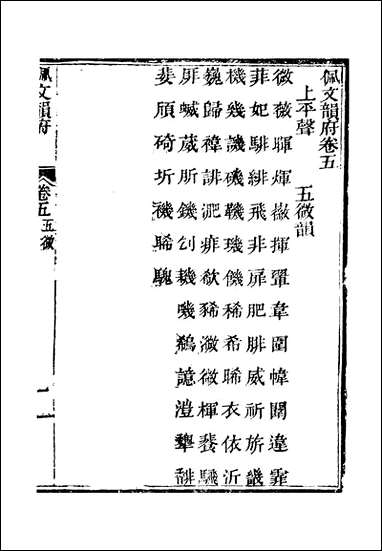 佩文韻府卷五
上平聲　五微韻
微薇暉煇徽揮翬韋圍幃闈違霏
菲妃騑緋飛非扉肥腓威祈旂畿
機幾譏磯鞿璣僟稀希晞衣依沂
巍歸褘誹淝痱欷豨
犩
剕蝛葳肵鐖刉
嘰鵗
澧
斐頎碕圻禨睎騩
佩文韻府
卷五 五微
一